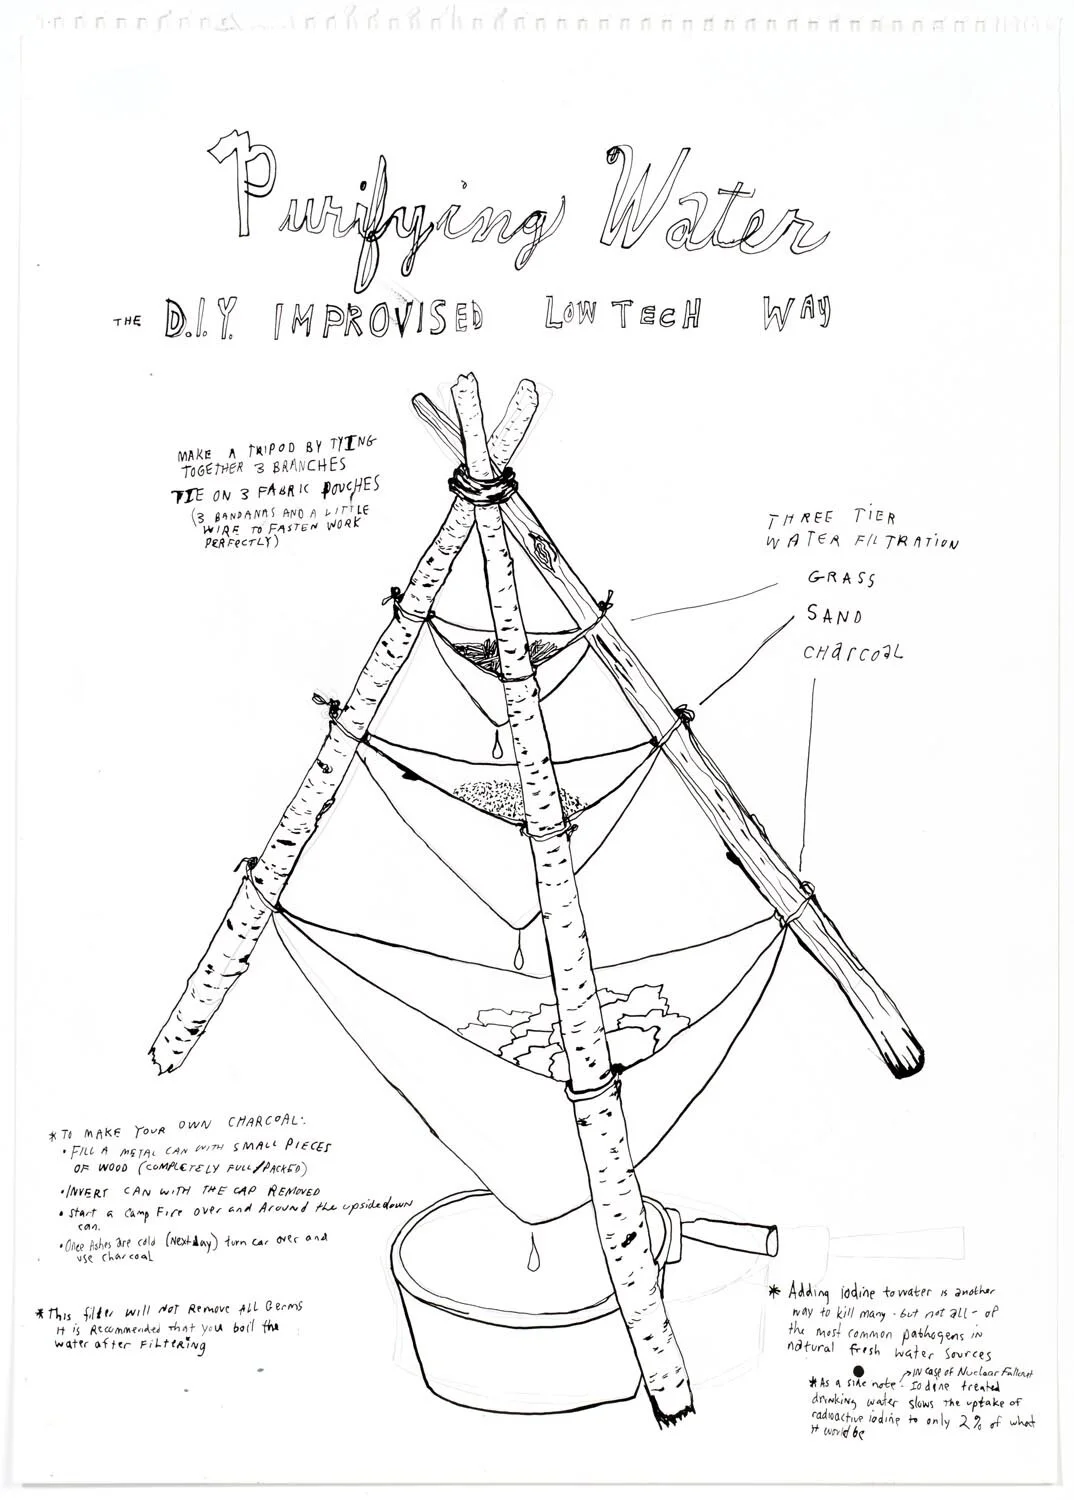 Purifying Water
THE D.I.Y. IMPROVISED LOW TECH WAY
MAKE A TRIPOD BY TYING
TOGETHER 3 BRANCHES
TIE ON 3 FABRIC POUCHES
(3 BANDANAS AND A LITTLE
WIRE TO FASTEN WORK
PERFECTLY)
THREE TIER
WATER FILTRATION
GRASS
SAND
CHArcoAL
* TO MAKE YOUR OWN CHARCOAL:
• FILL A METAL CAN WITH SMALL PIECES
OF WOOD (COMPLETELY FULL/PACKED)
• INVERT CAN WITH THE CAP REMOVED
• Start a Camp Fire over and Around the upsidedown
can.
• Once Ashes are cold (Next day) turn can over and
use charcoal
* This filter will NOT Remove ALL Germs
It is Recommended that you boil the
water after FILTERING
* Adding iodine to water is another
way to kill many - but not all - of
the most common pathogens in
natural fresh water sources
IN CASE OF Nuclear Fallout
* As a side note - Iodine treated
drinking water slows the uptake of
radioactive iodine to only 2% of what
it would be